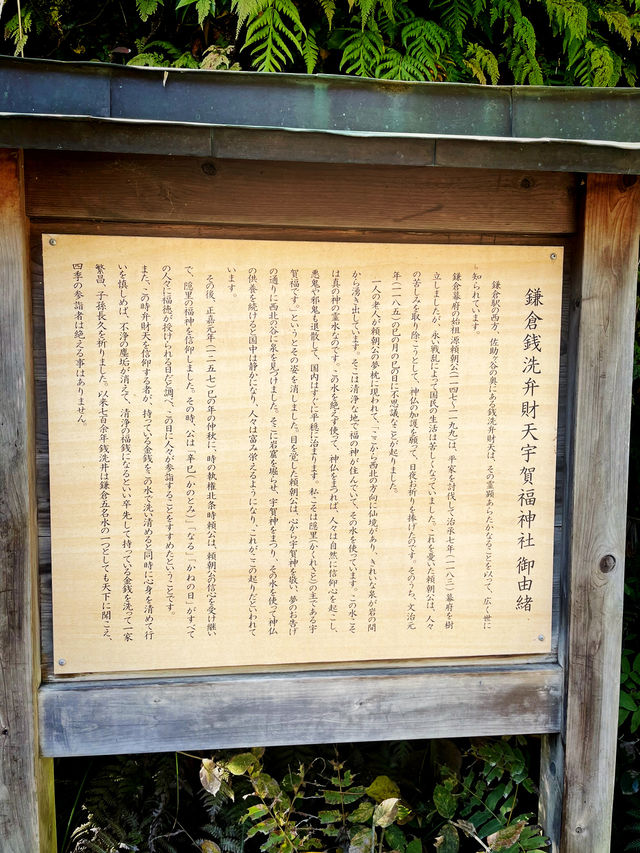 鎌倉銭洗弁財天宇賀福神社 御由緒
鎌倉駅の西方、佐助ヶ谷の奥にある銭洗弁財天は、その霊顕あらたかなることを以って、広く世に
知られています。
鎌倉幕府の始祖 源頼朝公(一一四七〜一一九九)は、平家を討伐して治承七年(一一八三)幕府を樹
立しましたが、永い戦乱によって国民の生活は苦しくなっていました。これを憂いた頼朝公は、人々
の苦しみを取り除こうとして、神仏の加護を願って、日夜お祈りを捧げたのです。そのうち、文治元
年(一一八五)の巳の月の巳の日に不思議なことが起りました。
一人の老人が頼朝公の夢枕に現われて、「ここから西北の方向に仙境があり、きれいな泉が岩の間
から湧き出しています。そこは清浄な地で福の神が住んでいて、その水を使っています。この水こそ
は真の神の霊水なのです。この水を絶えず使って、神仏をまつれば、人々は自然に信仰心を起こし、
悪鬼や邪鬼も退散して、国内はすぐに平穏に治まります。私こそは隠里(かくれざと)の主である宇
賀福です。」というとその姿を消しました。目を覚した頼朝公は、心から宇賀神を敬い、夢のお告げ
の通りに西北の谷に泉を見つけました。そこに岩窟を堀らせ、宇賀神をまつり、その水を使って神仏
の供養を続けると国中は静かになり、人々は富み栄えるようになり、これがここの起りだといわれて
います。
その後、正嘉元年(一二五七)巳の年の仲秋に、時の執権北条時頼公は、頼朝公の信心を受け継い
で、隠里の福神を信仰しました。その時、公は「辛巳」(かのとみ)「なる」「かねの日」がすべて
の人々に福徳が授けられる日だと調べ、この日に人々が参詣することをすすめたということです。
また、この時弁財天を信仰する者が、持っている金銭をこの水で洗い清めると同時に心身を清めて行
いを慎しめば、不浄の塵垢が消えて、清浄の福銭になるといい卒先して持っている金銭を洗って一家
繁昌、子孫長久を祈りました。以来七百余年銭洗井は鎌倉五名水の一つとしても天下に聞こえ、
四季の参詣者は絶える事はありません。